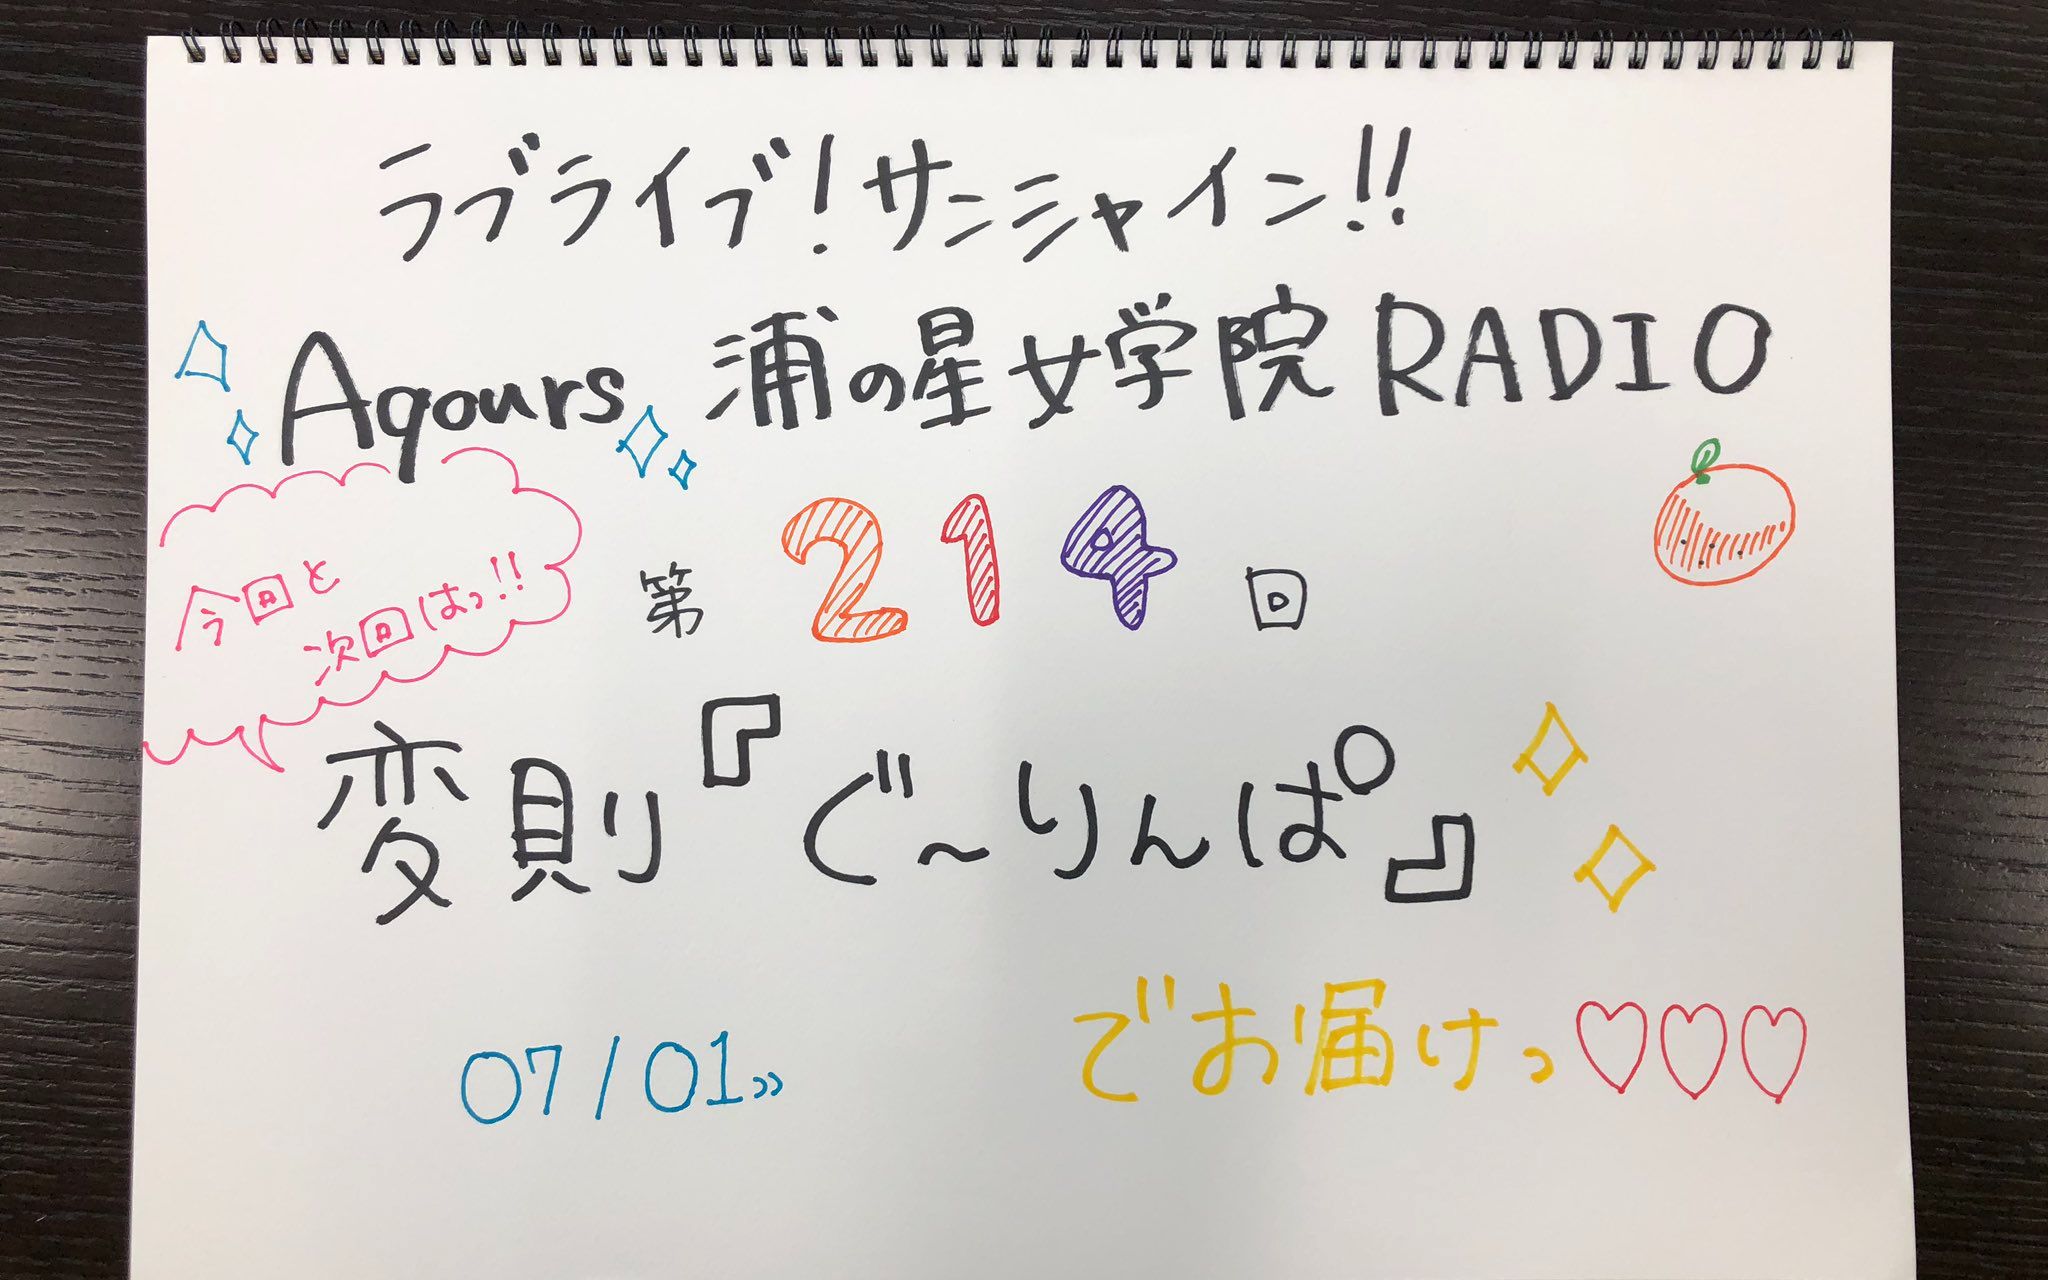 ラブライブ！サンシャイン!!
Aqours 浦の星女学院 RADIO
今回と
次回はっ!!
第 214 回
変則『ぐ〜りんぱ』
でお届けっ♡♡♡
07/01»